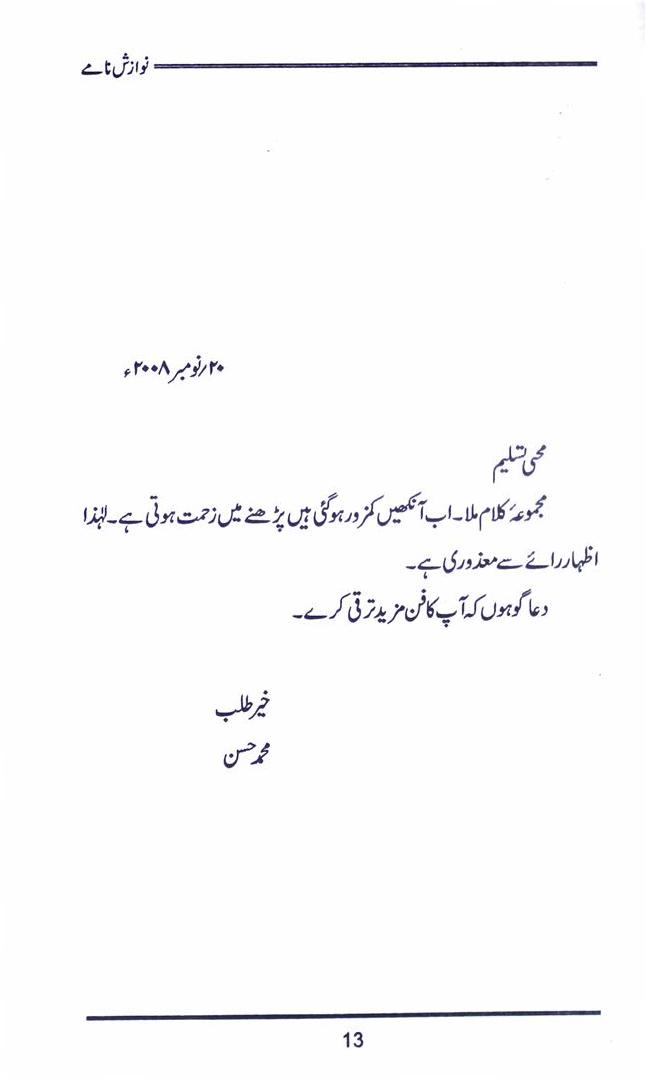 نوازش نامے
۲۰/نومبر ۲۰۰۸ء
محبی تسلیم
مجموعۂ کلام ملا۔ اب آنکھیں کمزور ہوگئی ہیں پڑھنے میں زحمت ہوتی ہے۔ لہٰذا
اظہار رائے سے معذوری ہے۔
دعا گو ہوں کہ آپ کا فن مزید ترقی کرے۔
خیر طلب
محمد حسن
13